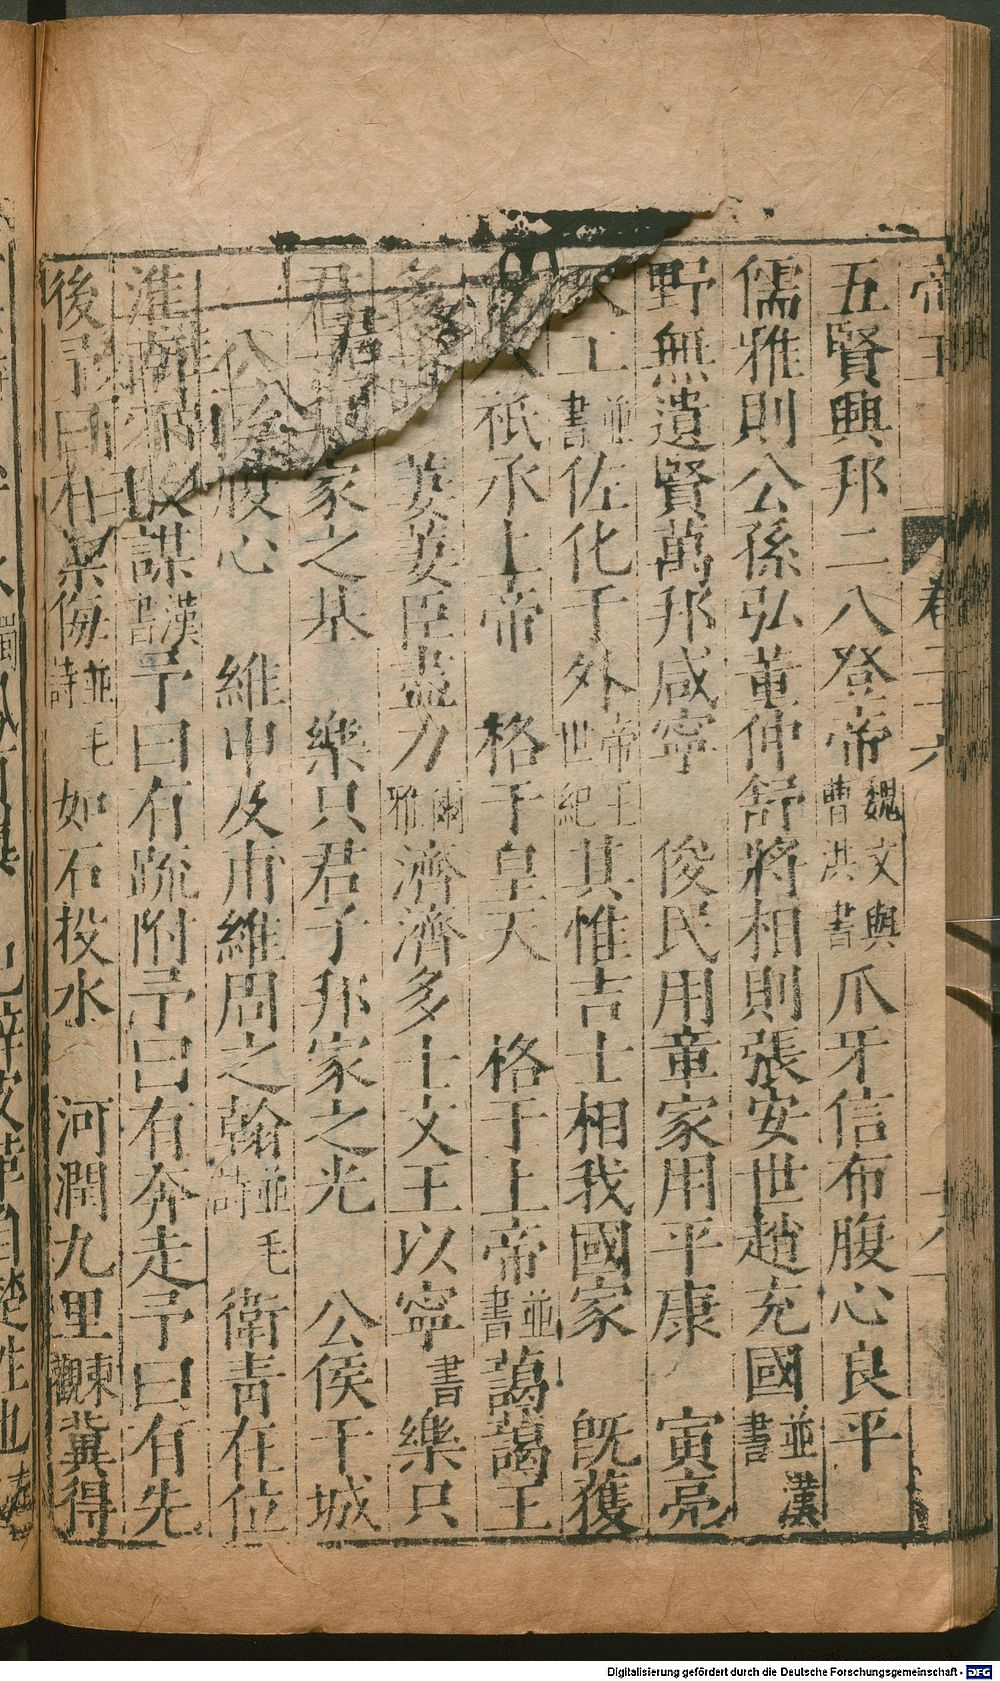 帝王 卷二十六
五賢興邦二八登帝魏文與曹洪書爪牙信布腹心良平
儒雅則公孫弘董仲舒將相則張安世趙充國並漢書
野無遺賢萬邦咸寧 俊民用章家用平康 寅亮
工並書佐化于外帝王世紀其惟吉士相我國家 旣獲
祇承上帝 格于皇天 格于上帝並書藹藹王
萋萋臣盡力爾雅濟濟多士文王以寧書樂只
君 家之基 樂只君子邦家之光 公侯干城
腹心 維申及甫維周之翰並毛詩衛青在位
淮 謀漢書予曰有疏附予曰有奔走予曰有先
後予曰有禦侮並毛詩如石投水 河潤九里東觀冀得
Digitalisierung gefördert durch die Deutsche Forschungsgemeinschaft - DFG